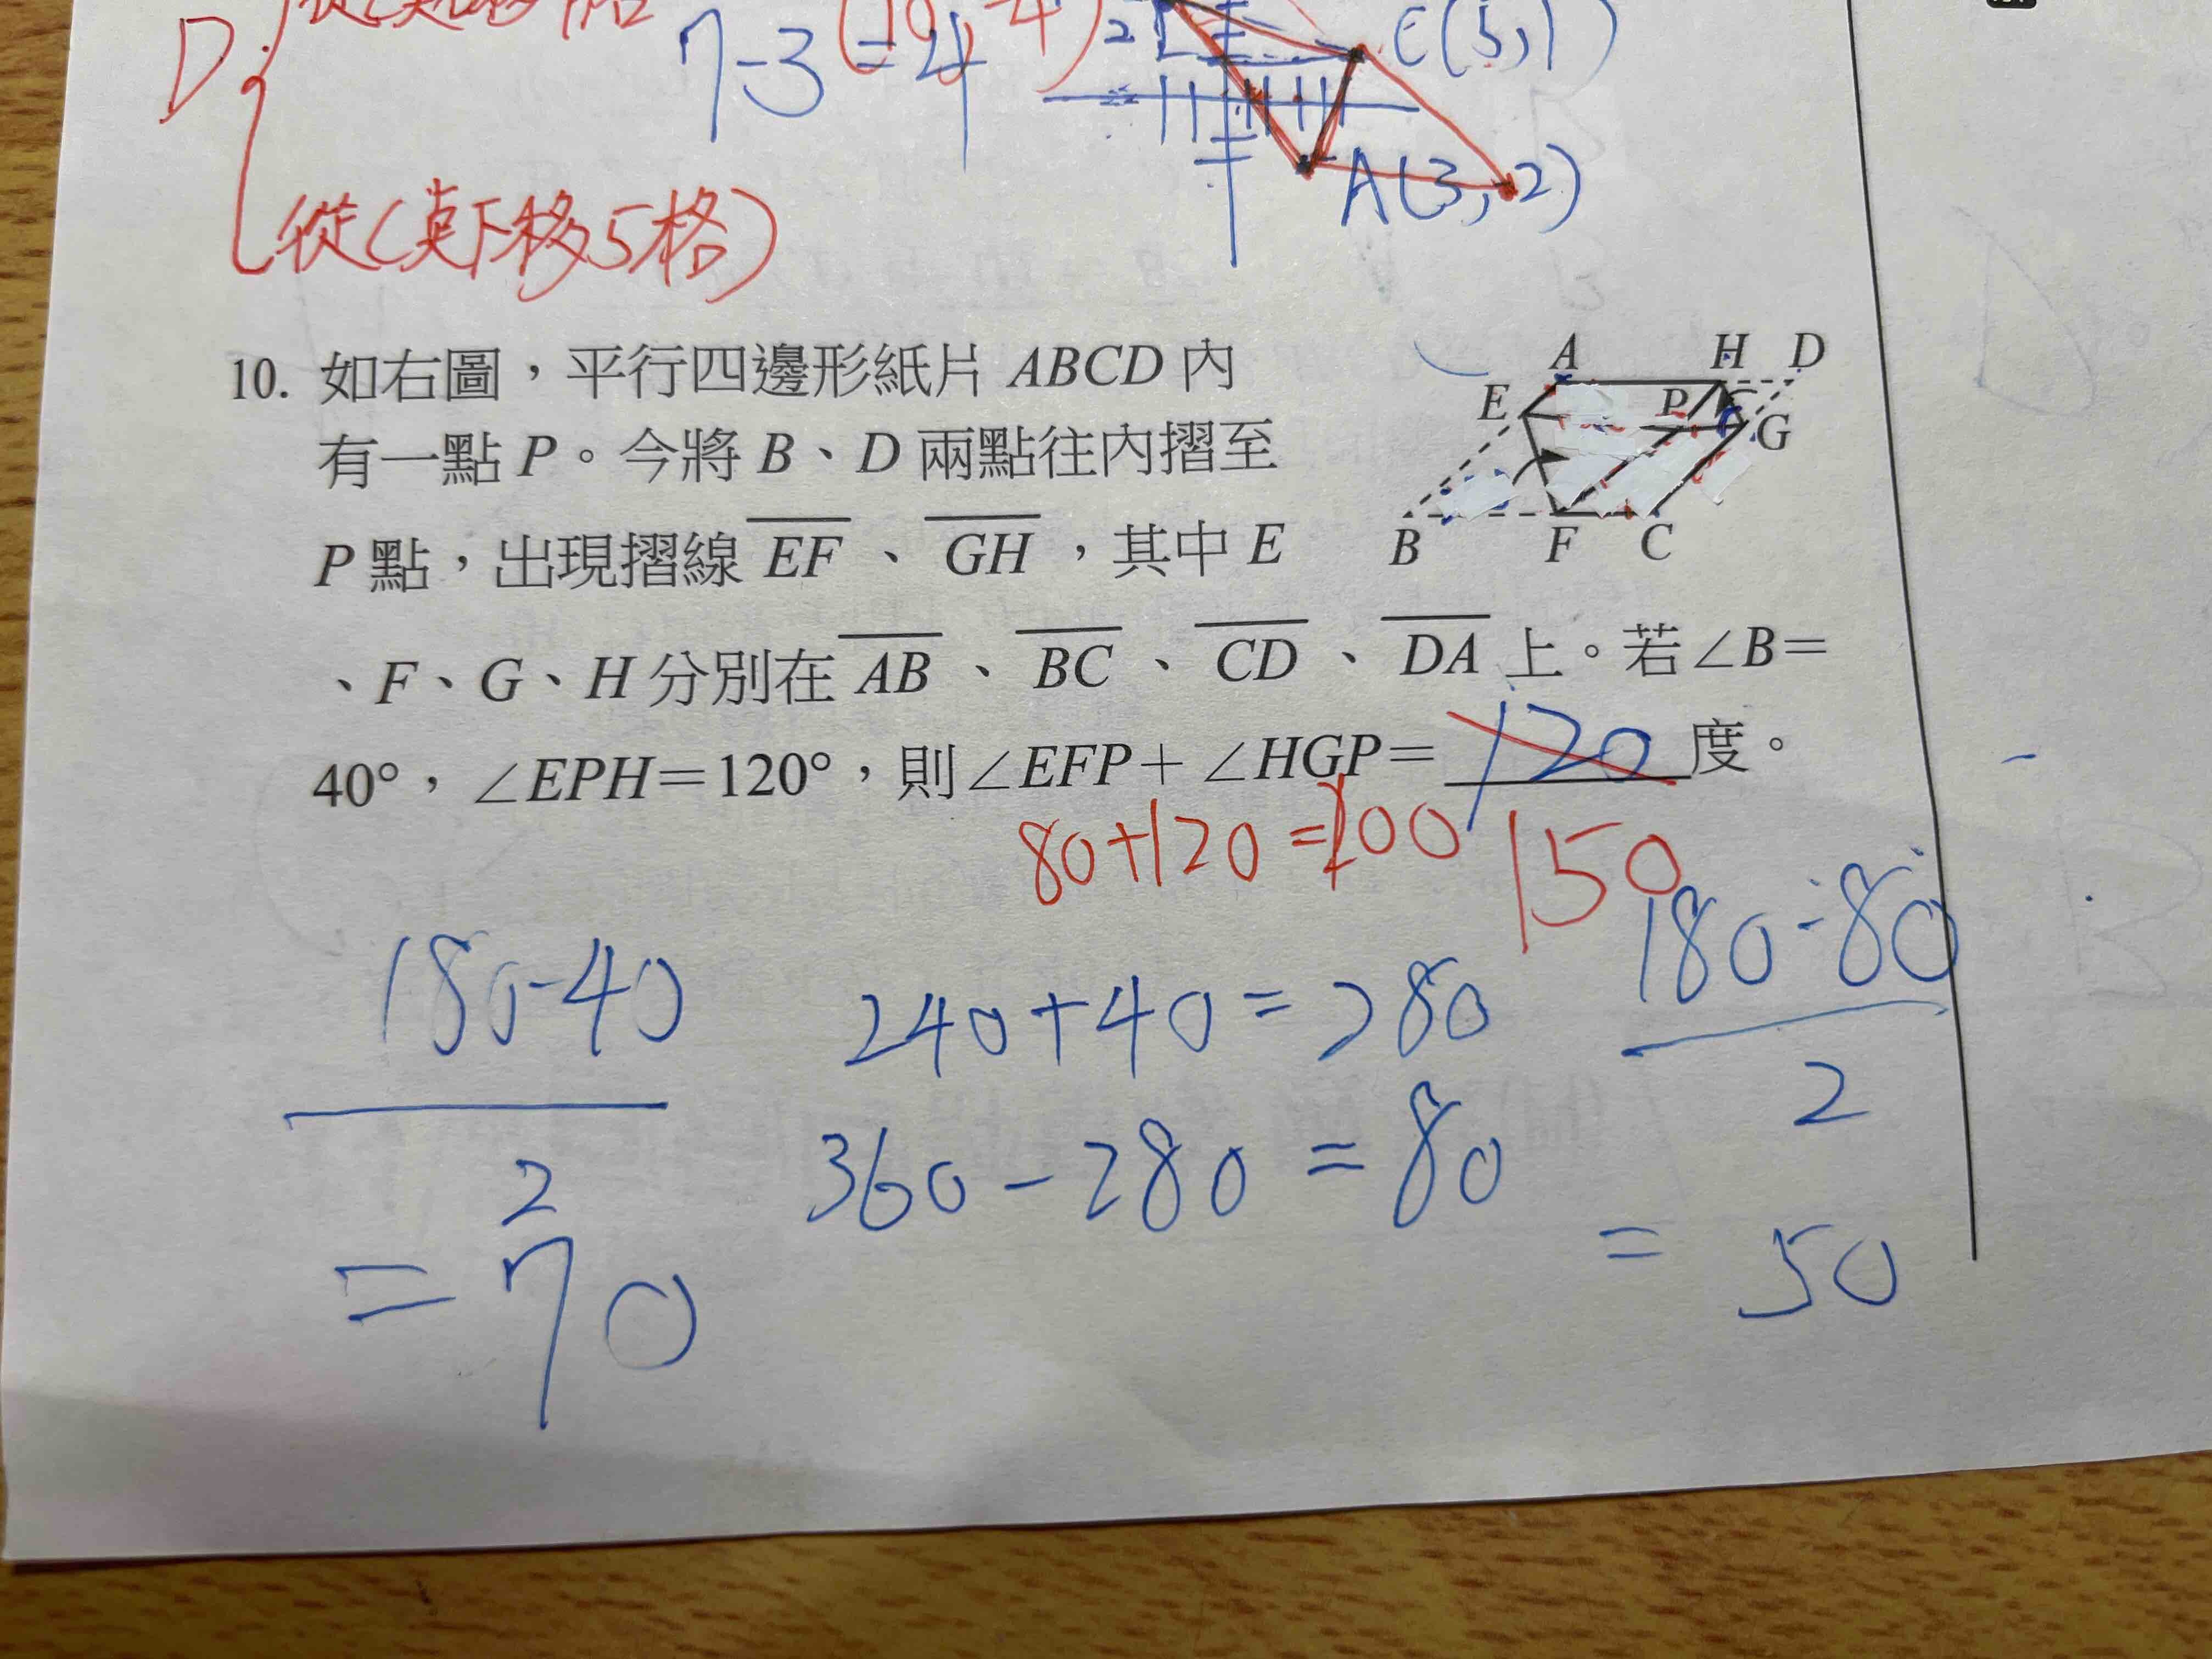 D
7-3=4
2
C(5,1)
A(3,-2)
從(東下移5格)
10. 如右圖，平行四邊形紙片 ABCD 內
有一點 P。今將 B、D 兩點往內摺至
P 點，出現摺線 EF、GH，其中 E
、F、G、H 分別在 AB、BC、CD、DA 上。若∠B=
40°，∠EPH=120°，則∠EFP+∠HGP=120度。
A H D
E P G
B F C
80+120=200
150
180-40
2
=70
240+40=280
360-280=80
180-80
2
=50